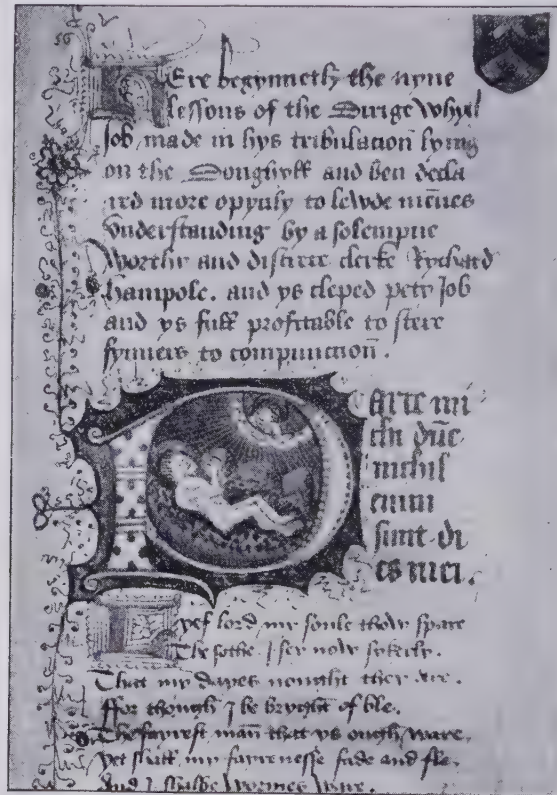 56
Here begynneth the nyne
lessons of the Dirige Whych
Job made in hys tribulacion̄ lying
on the Donghyll and ben decla
red more opynly to lewde mēnes
Vnderstanding by a solempne
Worthy and discrete clerke Rychard
hampole. and ys cleped pety Job
and ys full profitable to stere
synners to compunction̄.
Parce mi
chi dn̄e
nichil
enim
sunt di
es mei.
Lyef lord my soule thow spare
The sothe I sey now sykerly.
That my dayes nought they are.
ffor though I be bryght of ble.
The fayrest man that ys ough ware.
yet shall my fayrenesse fade and fle.
And I shalbe Wormes Ware.